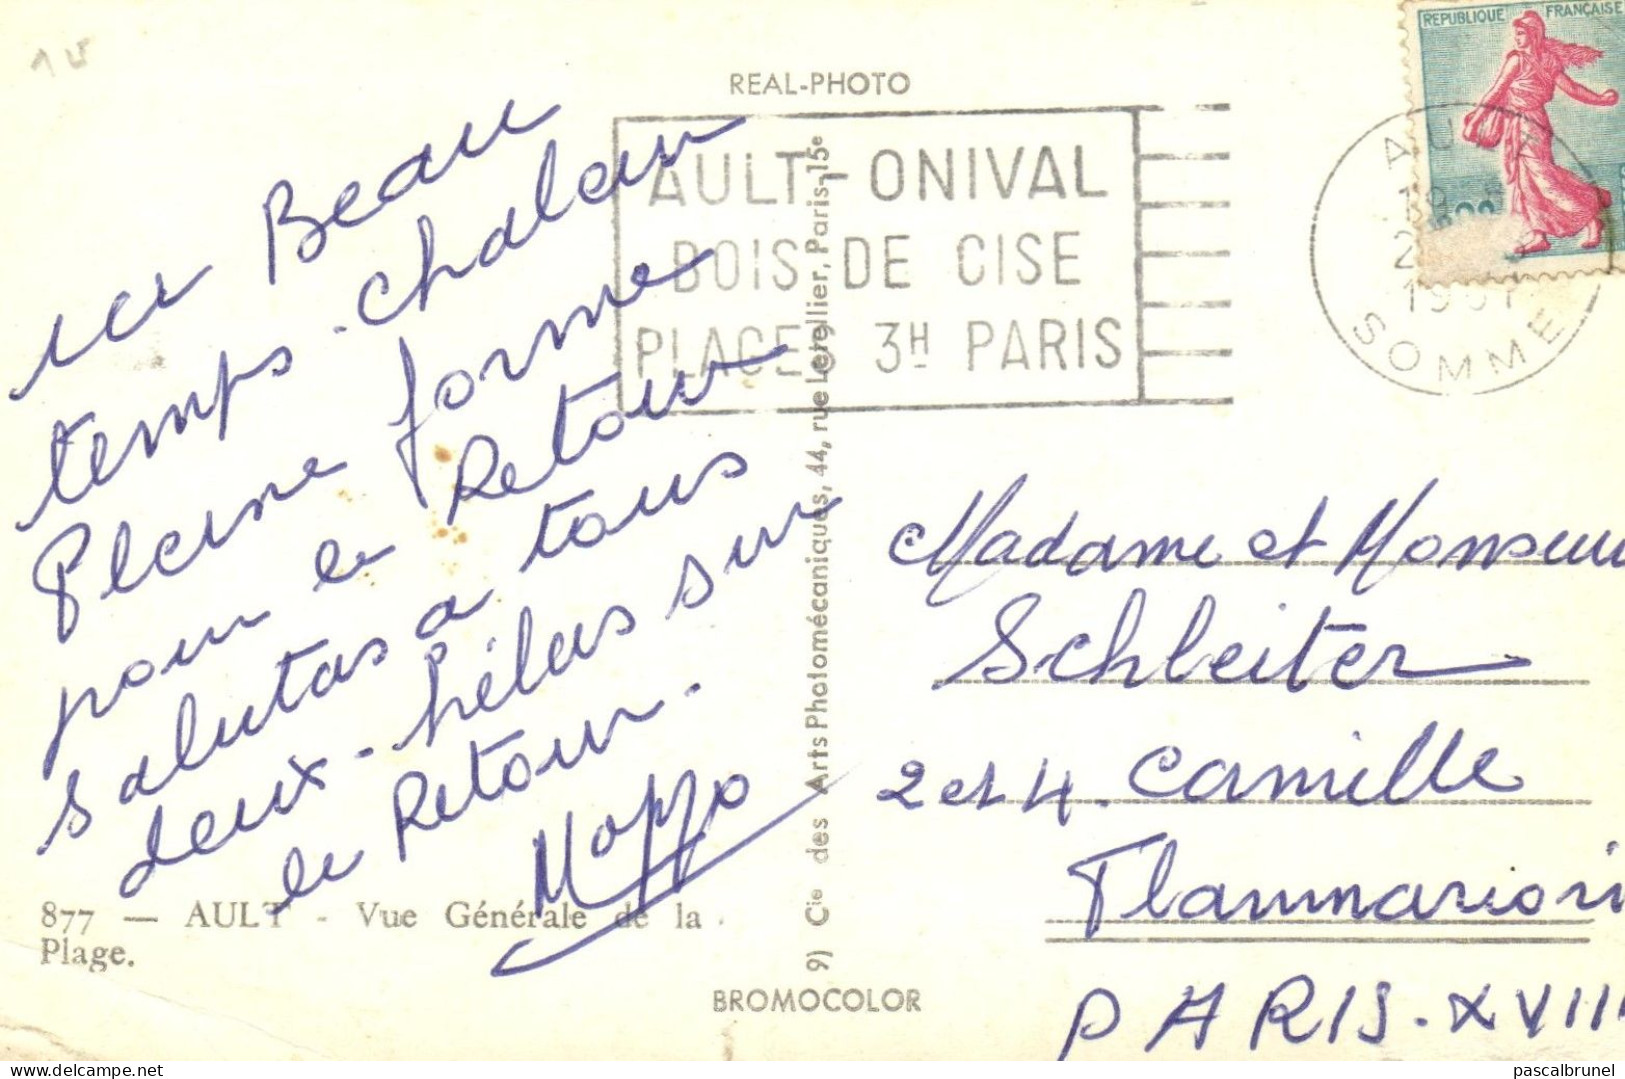 REAL-PHOTO
REPUBLIQUE FRANÇAISE
AULT-ONIVAL
BOIS DE CISE
PLAGES 3H PARIS
AULT
SOMME
ici Beau
temps. chaleur
Pleine forme
pour le Retour
salutas à tous
deux - hélas sur
le Retour.
Madame et Monsieur
Schleiter
2 et 4. Camille
Flammarion
PARIS. XVIII
877 — AULT - Vue Générale de la
Plage.
9) Cie des Arts Photomécaniques, 44, rue Letellier, Paris-15e
BROMOCOLOR
pascalbrunel